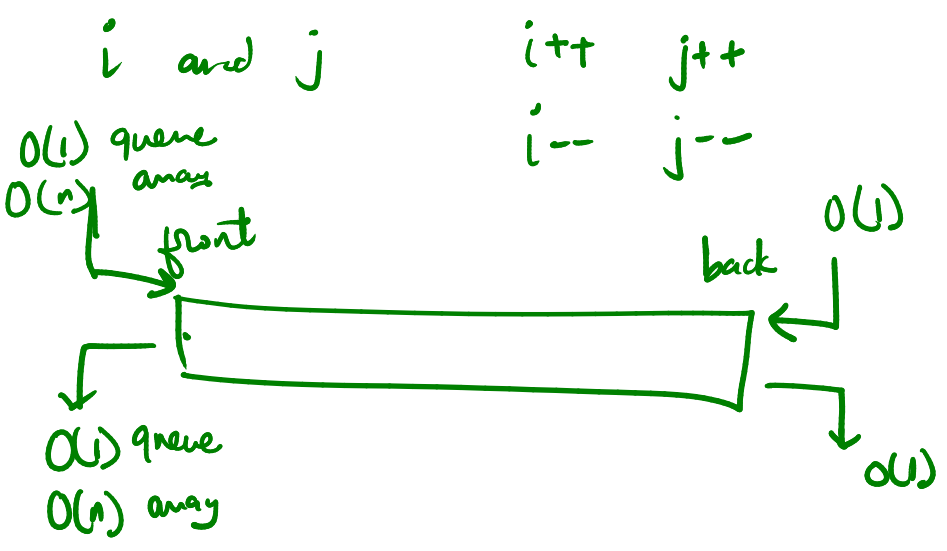 i and j i++ j++
i-- j--
O(1) queue
O(n) array
front
back
O(1)
O(1) queue
O(n) array
O(1)